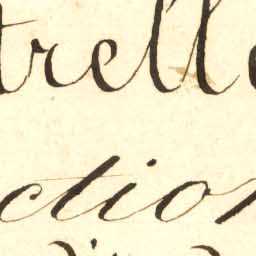 trell
ction